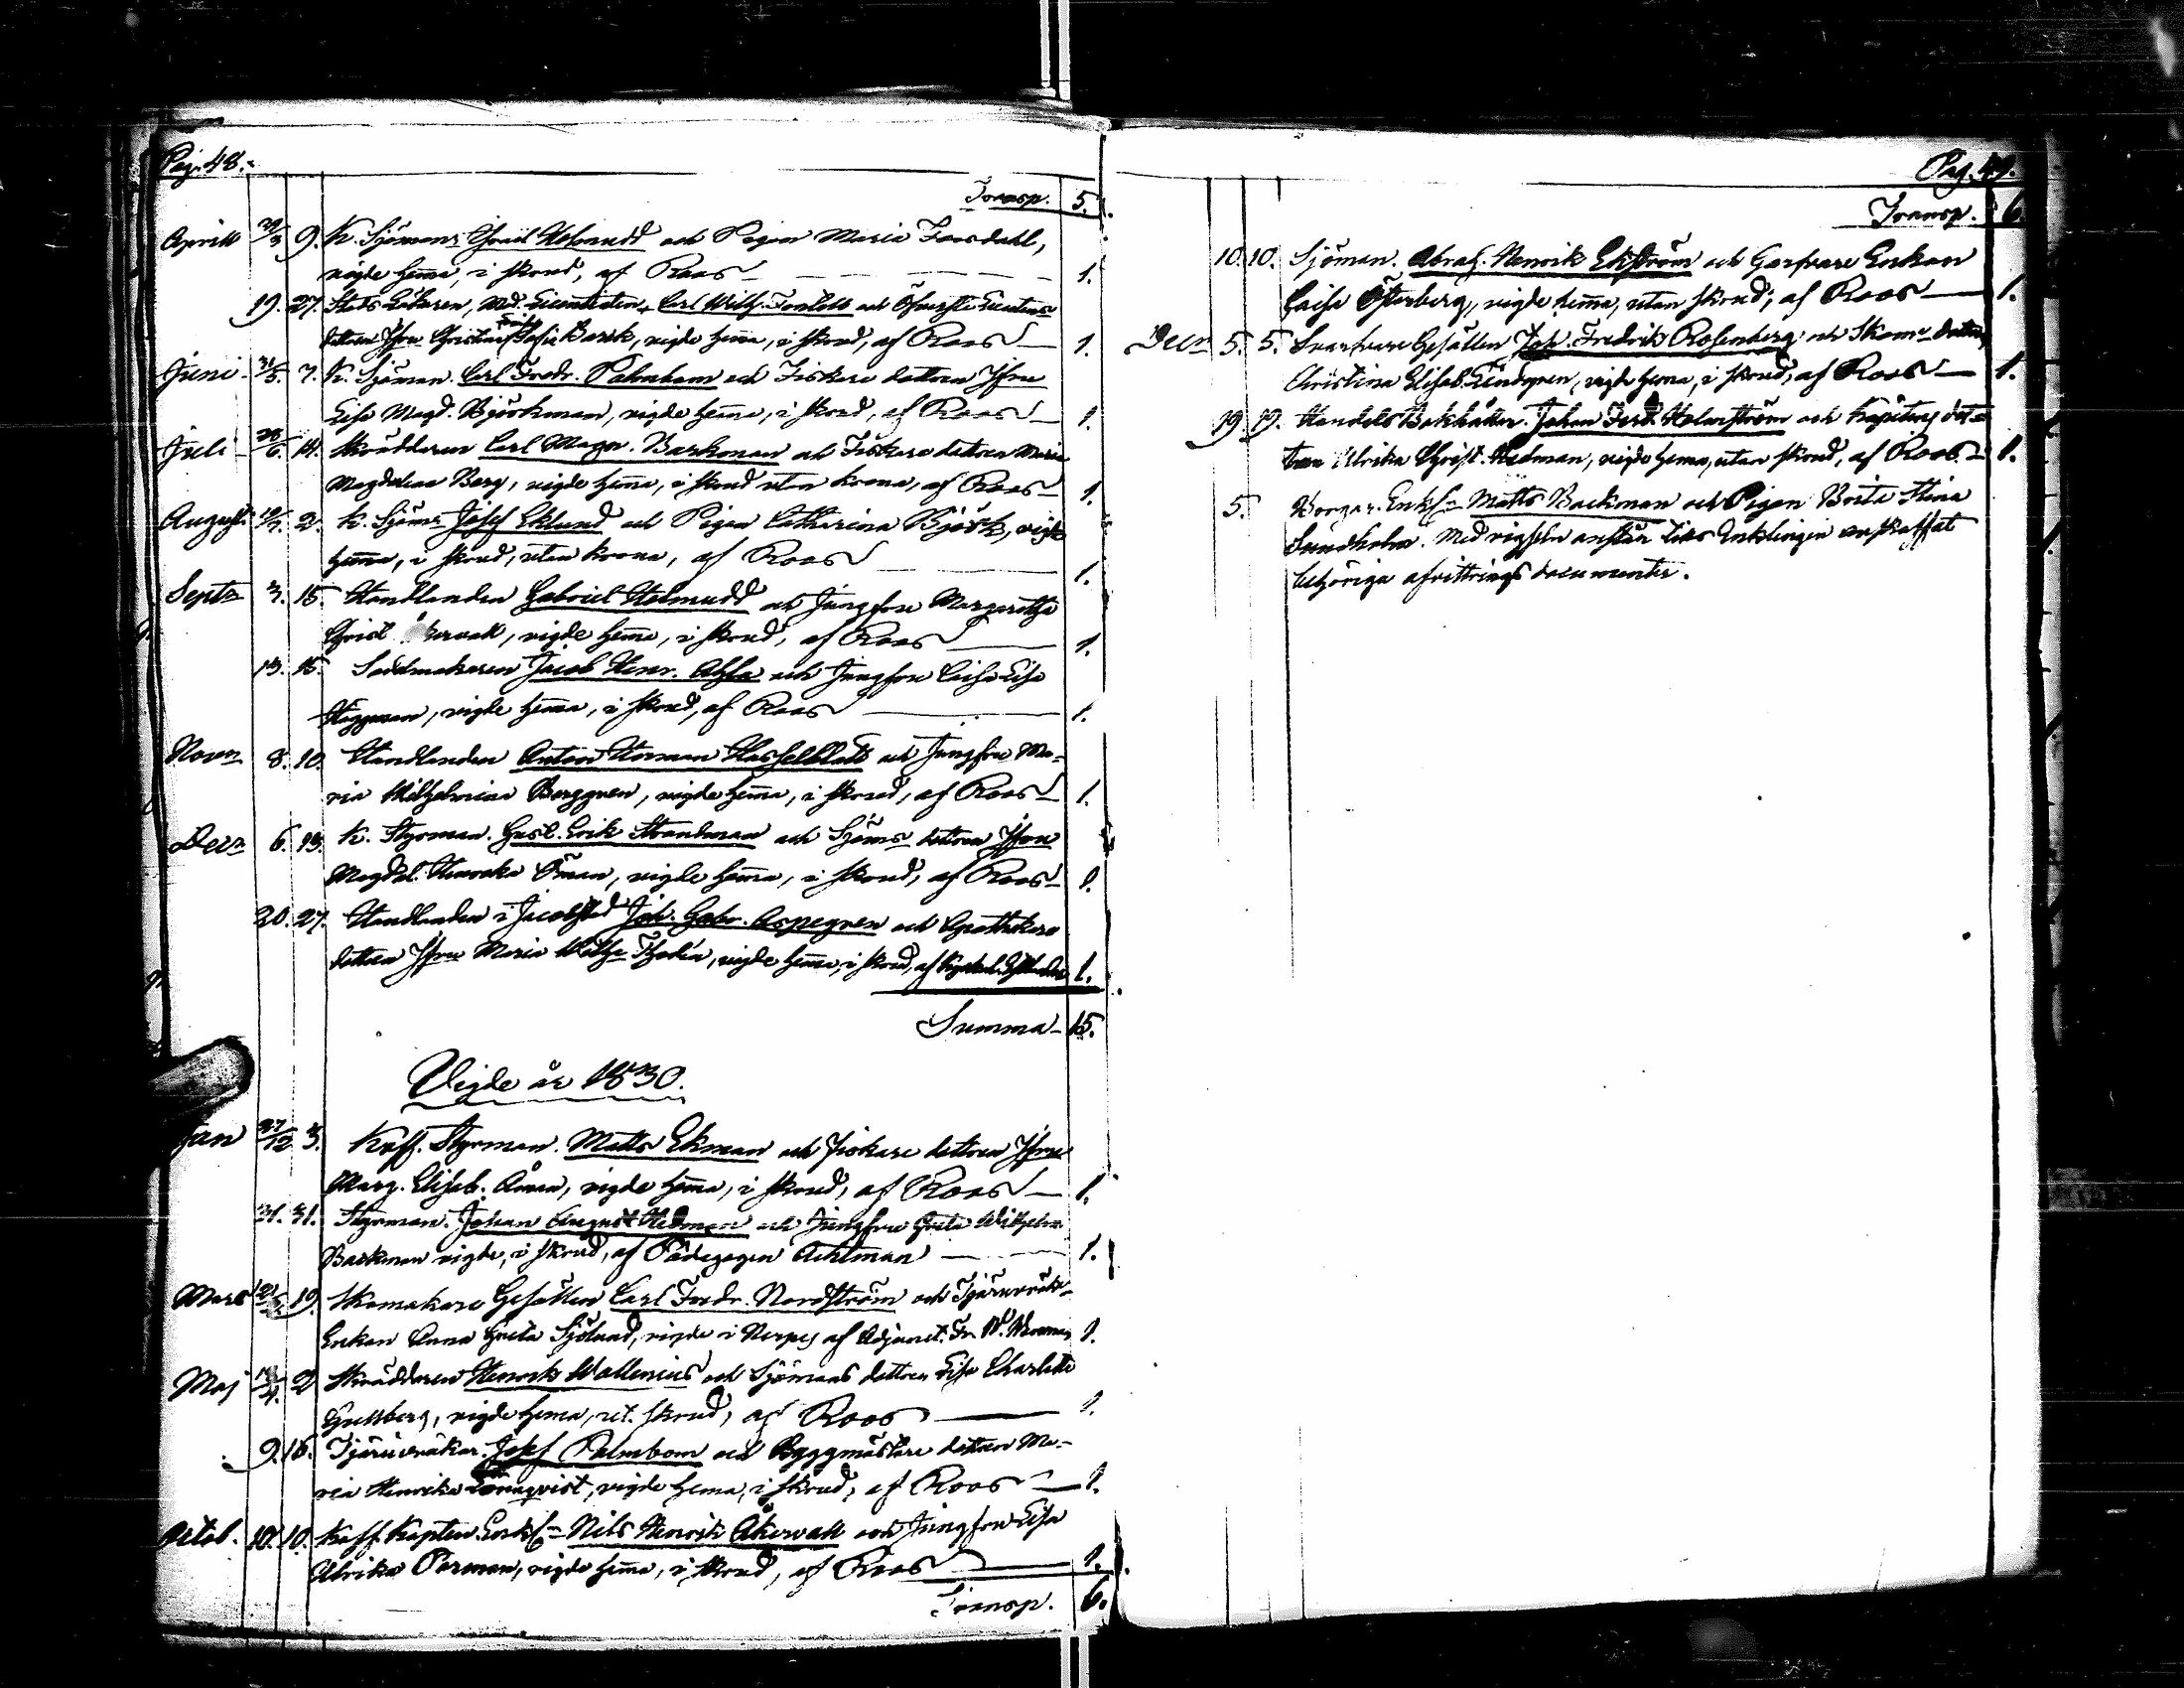 Pag. 48.
Transp. 5.
Aprill 29/3 9. K. Sjömans Gabriel Holmudd och Pigan Maria Forsdahl,
vigde hemma, i skrud, af Roos 1.
19. 27. Stads Läkaren, Med. Licentiaten Carl Wilh. Forstell och Öfverste Lieutens
dottren Jfru Christina Sofia Barck, vigde hemma, i skrud, af Roos 1.
Juni 31/5. 7. K. Sjöman. Carl Fredr. Palmbom och Fiskare dottren Jfru
Lisa Magd. Björkman, vigde hemma, i skrud, af Roos 1.
Juli 28/6. 14. Skräddaren Carl Magn. Backman och Fiskare dottren Maria
Magdalena Berg, vigde hemma, i skrud utan krona, af Roos 1.
Augusti 19/7. 2. K. Sjöms Josef Eklund och Pigan Catharina Björk, vigde
hemma, i skrud, utan krona, af Roos 1.
Septr 3. 15. Handlanden Gabriel Holmudd och Jungfru Margaretha
Christ. Åkervall, vigde hemma, i skrud, af Roos 1.
13. 15. Sadelmakaren Jacob Henr. och Jungfru Caisa Lisa
Häggman, vigde hemma, i skrud, af Roos 1.
Novr 8. 10. Handlanden Anton Herman Hasselblatt och Jungfru Ma-
ria Wilhelmina Berggren, vigde hemma, i skrud, af Roos 1.
Decr 6. 13. K. Styrman. Gust. Erik Strandman och Sjöms dottren Jfru
Magdal. Henrika Öman, vigde hemma, i skrud, af Roos 1.
20. 27. Handlanden i Jacobstad Joh. Gabr. Aspegren och Apothekare
dottren Jfru Maria Wilh. Thodén, vigde hemma, i skrud, af 1.
Summa 15.
Vigde år 1830.
Jan 27/12 3. Koff. Styrman. Matts Ekman och Fiskare dottren Jfru
Marg. Elisab. Åman, vigde hemma, i skrud, af Roos 1.
31. 31. Styrman. Johan August Hedman och Jungfru Greta Wilhelm.
Backman vigde, i skrud, af Pädagogen Achlman 1.
Mars 21/2 19. Skomakare Gesällen Carl Fredr. Nordström och Tjäruvräk.
Enkan Anna Greta Sjölund, vigde i Nerpes af Adjunct. Fr. W. 1.
Maj 18/4. 2 Skräddaren Henrik Wallenius och Sjömans dottren Lisa Charlotta
Gullberg, vigde hemma, ut. skrud, af Roos 1.
9. 16. Tjäruvräkar. Josef Palmbom och Byggmästare dottren Ma-
ria Henrika Lönnqvist, vigde hemma, i skrud, af Roos 1.
Octob. 10. 10. Koff. Kapten Enkl. Nils Henrik Åkervall och Jungfru Lisa
Ulrika Parman, vigde hemma, i skrud, af Roos 1.
Transp. 6.
Pag. 49.
Transp. 6.
10. 10. Sjöman. Abrah. Henrik Ekström och Garfvare Enkan
Caisa Österberg, vigde hemma, utan skrud, af Roos 1.
Decr 5. 5. Svarfvare Gesällen Joh. Fredrik Rosenberg och Skom. dottren
Christina Elisab. Lindgren, vigde hemma, i skrud, af Roos 1.
19. 19. Handels Bokhållar. Johan Ferd. Holmström och Kapitens dot-
tren Ulrika Christ. Hedman, vigde hemma, utan skrud, af Roos 1.
5. Borgar. Enkl. Matts Backman och Pigan Brita Stina
Sundholm. Med vigseln anstår tills Enklingen anskaffat
behöriga afvittrings documenter.